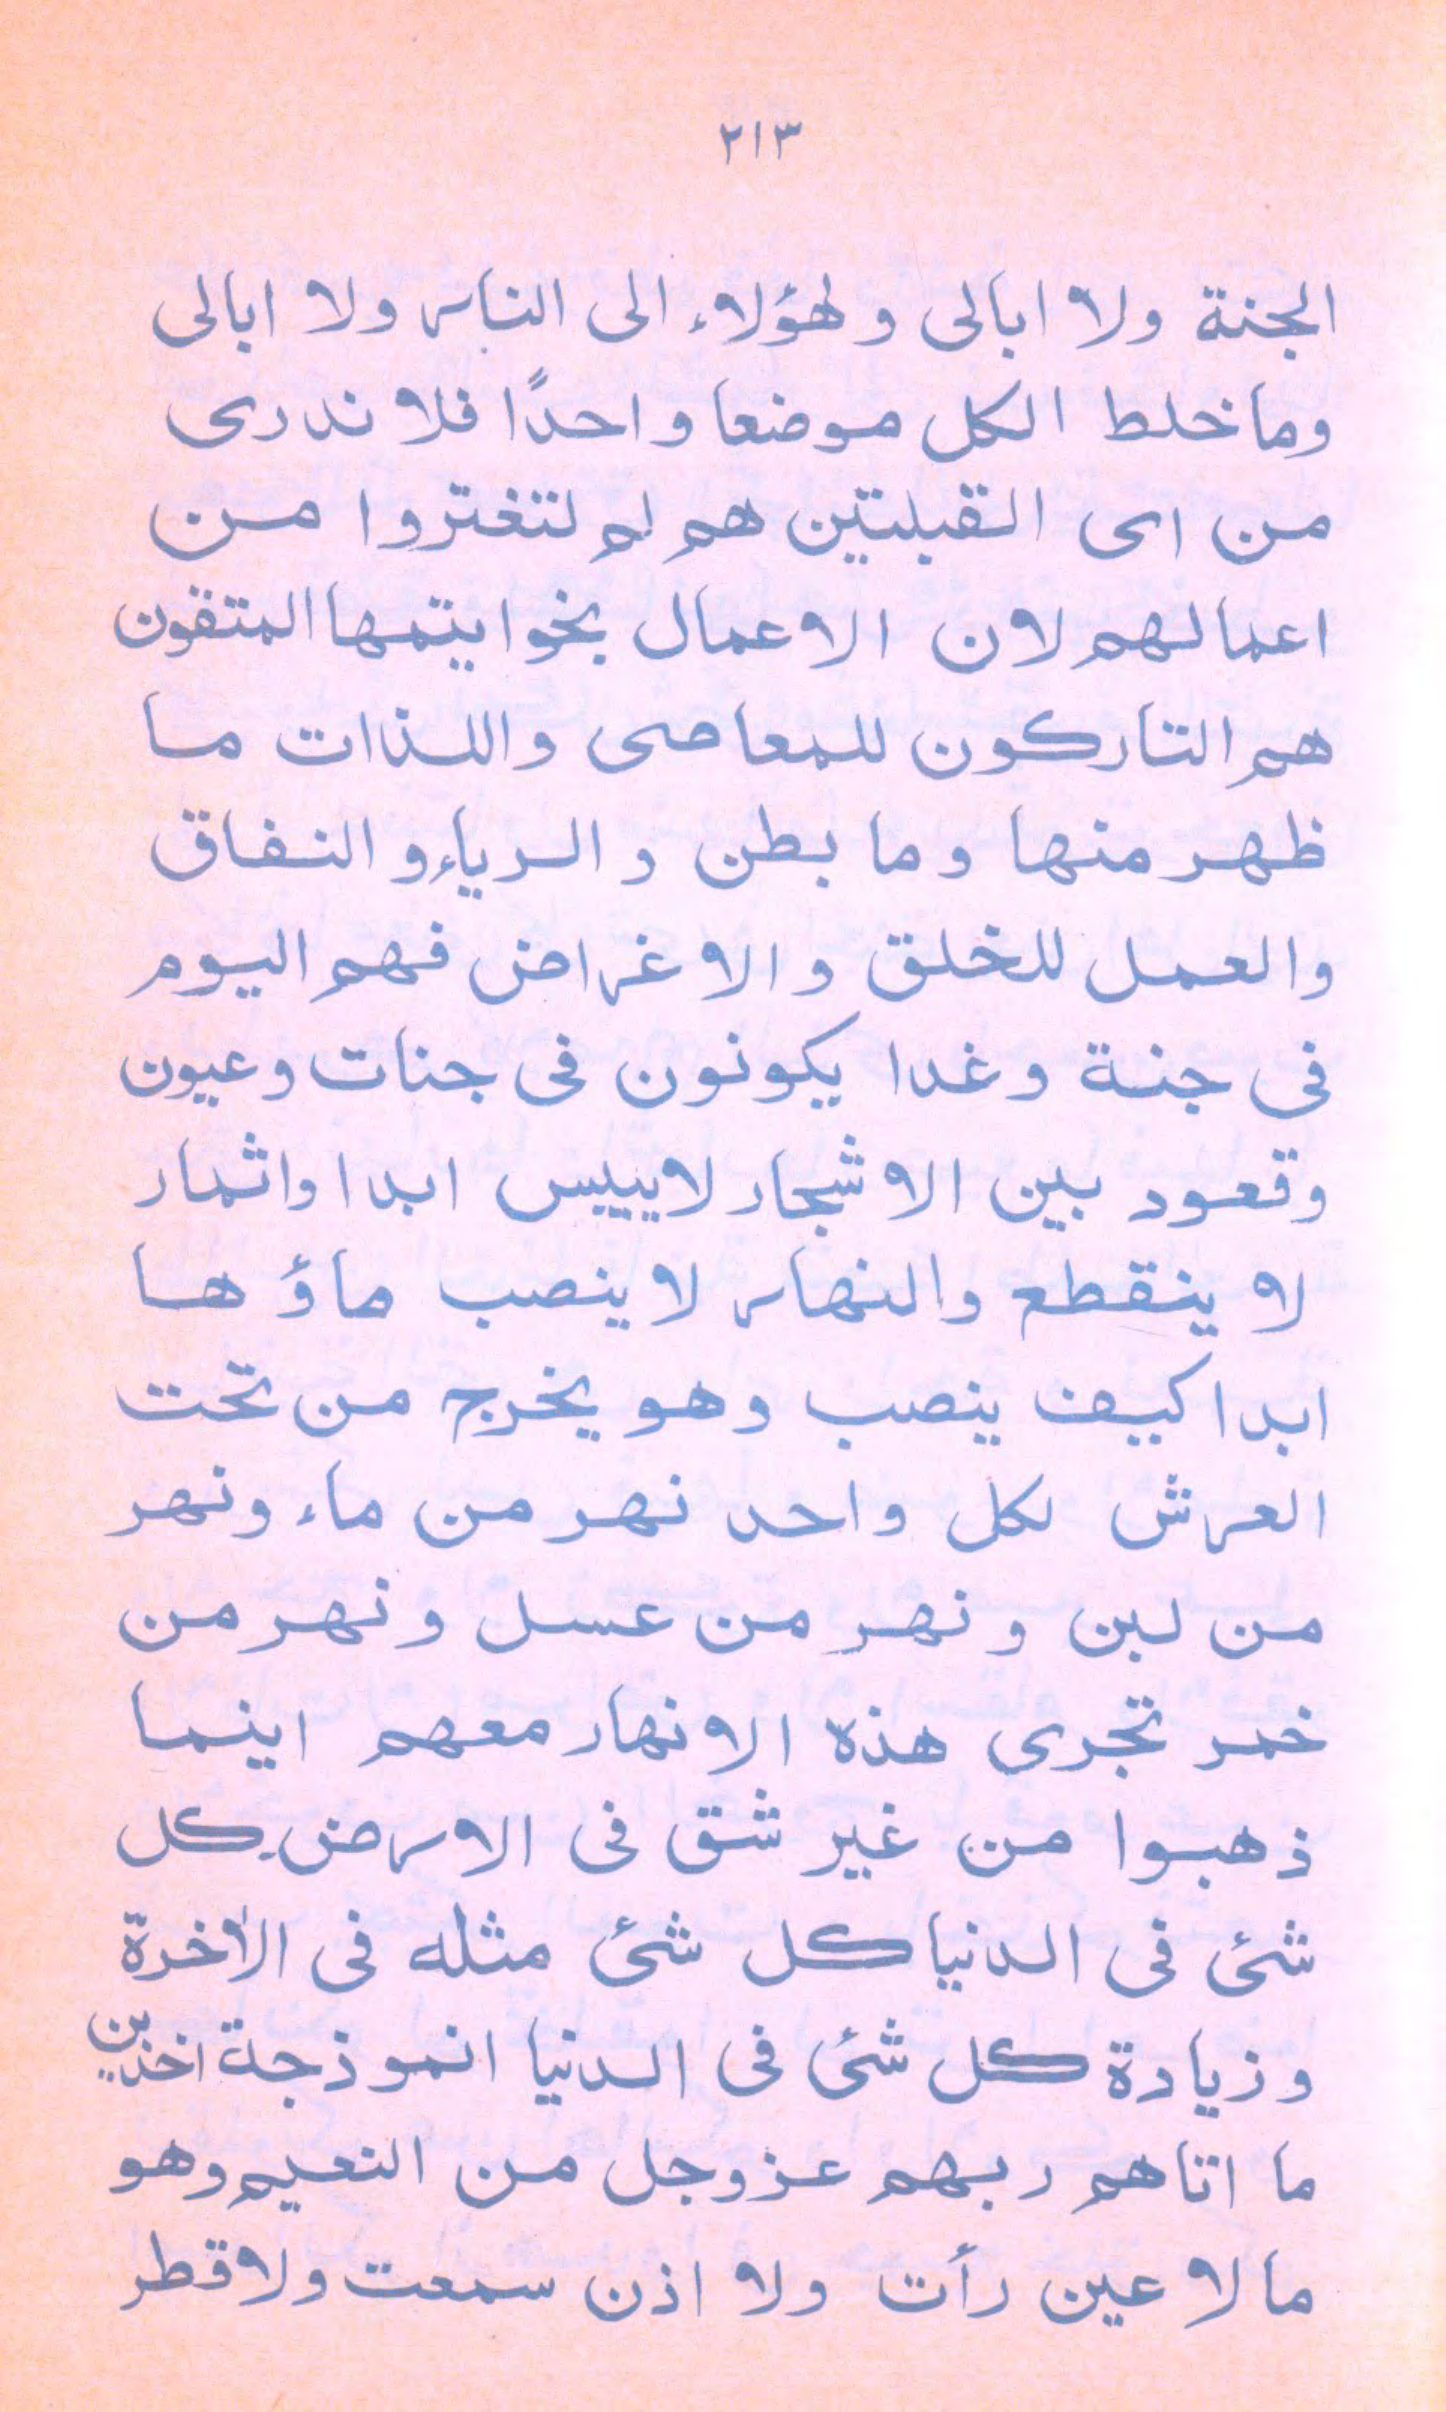 ٢١٣
الجنة ولا ابالى ولهؤلاء الى النار ولا ابالى
وما خلط الكل موضعا واحدًا فلا ندرى
من اى القبلتين هم لم لتغتروا من
اعمالهم لان الاعمال بخوايتمها المتقون
هم التاركون للمعاصى واللذات ما
ظهر منها وما بطن والرياء والنفاق
والعمل للخلق والاغراض فهم اليوم
فى جنة وغدا يكونون فى جنات وعيون
وقعود بين الاشجار لاييبس ابدا واثمار
لا ينقطع والنهار لا ينصب ماؤ ها
ابدا كيف ينصب وهو يخرج من تحت
العرش لكل واحد نهر من ماء ونهر
من لبن ونهر من عسل ونهر من
خمر تجرى هذه الانهار معهم اينما
ذهبوا من غير شق فى الارض كل
شئ فى الدنيا كل شئ مثله فى الأخرة
وزيادة كل شئ فى الدنيا انموذجة اخذين
ما اتاهم ربهم عزوجل من النعيم وهو
مالا عين رأت ولا اذن سمعت ولا قطر